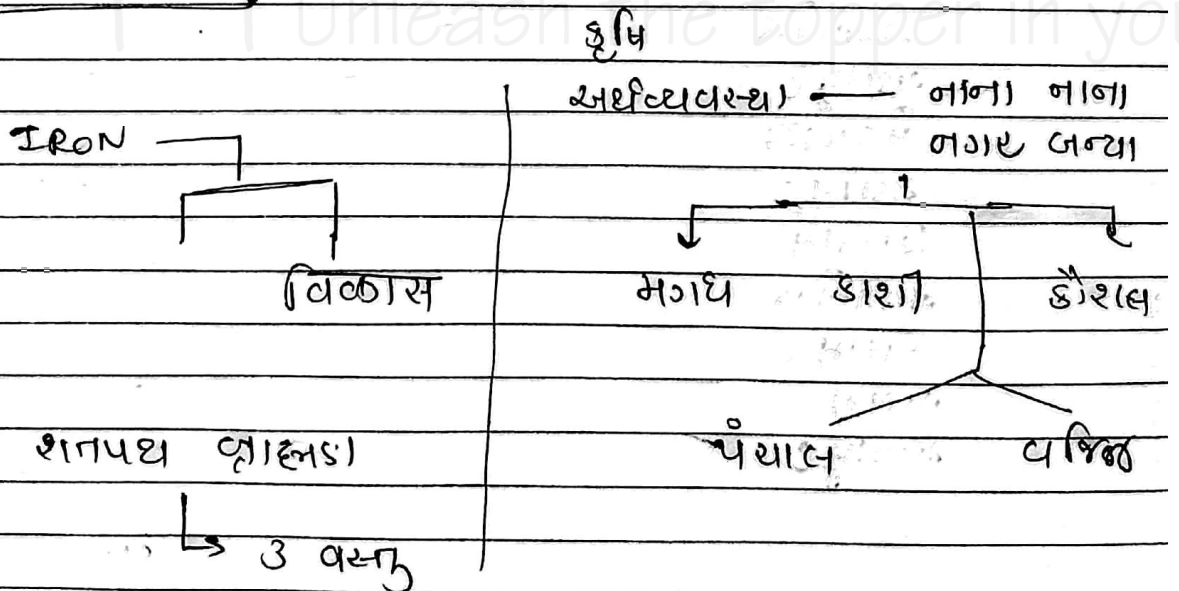 Unleash the topper in you
કૃષિ
અર્થવ્યવસ્થા — નાના નાના
નગર બન્યા
IRON
વિકાસ
મગધ કાશી કૌશલ
શતપથ બ્રાહ્મણ
પંચાલ વજ્જિ
→ 3 વસ્તુ